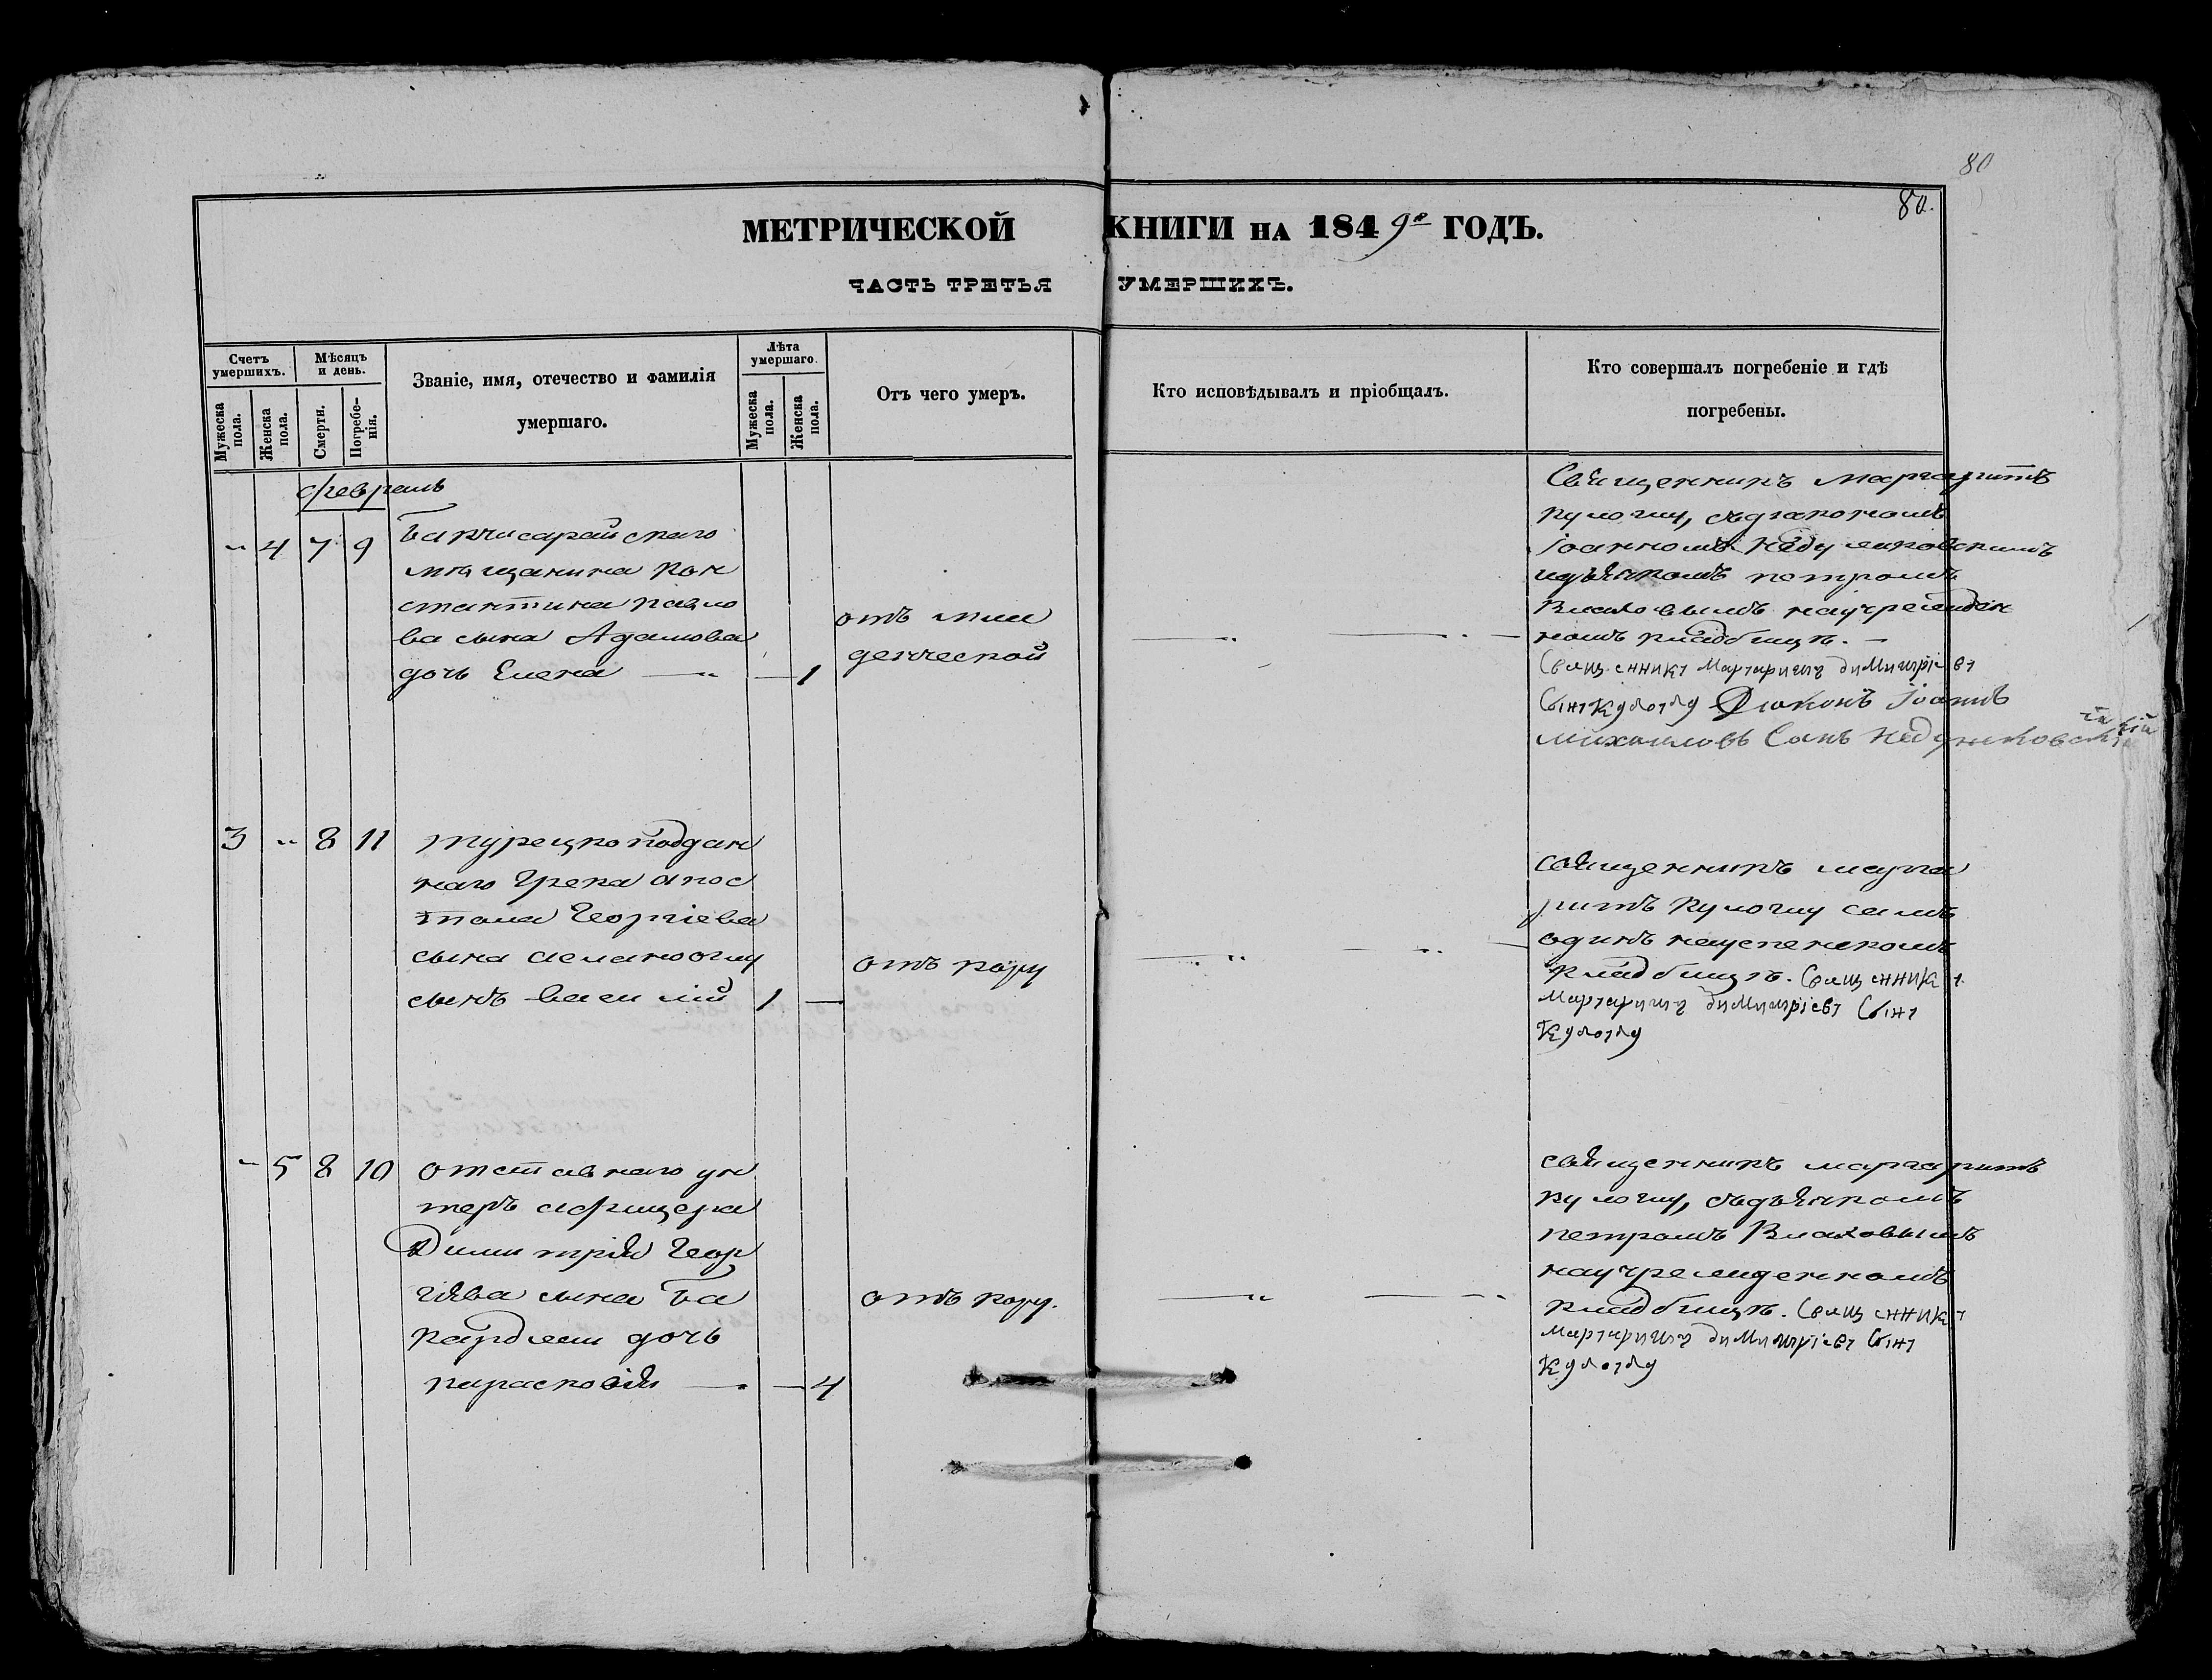 80
80.
МЕТРИЧЕСКОЙ КНИГИ НА 1849й ГОДЪ.
ЧАСТЬ ТРЕТЬЯ УМЕРШИХЪ.
Счетъ умершихъ.
Мужеска пола.
Женска пола.
Мѣсяцъ и день.
Смерти.
Погребенія.
Званіе, имя, отечество и фамилія
умершаго.
Лѣта умершаго.
Мужеска пола.
Женска пола.
Отъ чего умеръ.
Кто исповѣдывалъ и пріобщалъ.
Кто совершалъ погребеніе и гдѣ
погребены.
февраль
„ 4 7 9
Бахчисарайскаго
мѣщанина Кон
стантина Павло
ва сына Адамова
дочь Елена — „ — 1
отъ мла
денческой
Священникъ Маргаритъ
Кулоглу, съдіакономъ
Іоанномъ
идьячкомъ Петромъ
Влаховымъ научрежден
номъ кладбищѣ. —
Священникъ Маргаритъ Димитріевъ
Сынъ Кулоглу Діаконъ Іоаннъ
Михаиловъ Сынъ
3 „ 8 11
Турецкоподдан
наго Грека Апос
тола Георгіева
сына Асланоглу
сынъ Василій 1 —
отъ кору
священникъ Марга
ритъ Кулоглу самъ
одинъ науспенскомъ
кладбищѣ. Священникъ
Маргаритъ Димитріевъ Сынъ
Кулоглу
„ 5 8 10
отставнаго ун
теръ афицера
Димитрія Геор
гіява сына Ба
дочь
Парасковія — — 4
отъ кору.
священникъ Маргаритъ
Кулоглу, съдьячкомъ
Петромъ Влаховымъ
научрежденномъ
кладбищѣ. Священникъ
Маргаритъ Димитріевъ Сынъ
Кулоглу